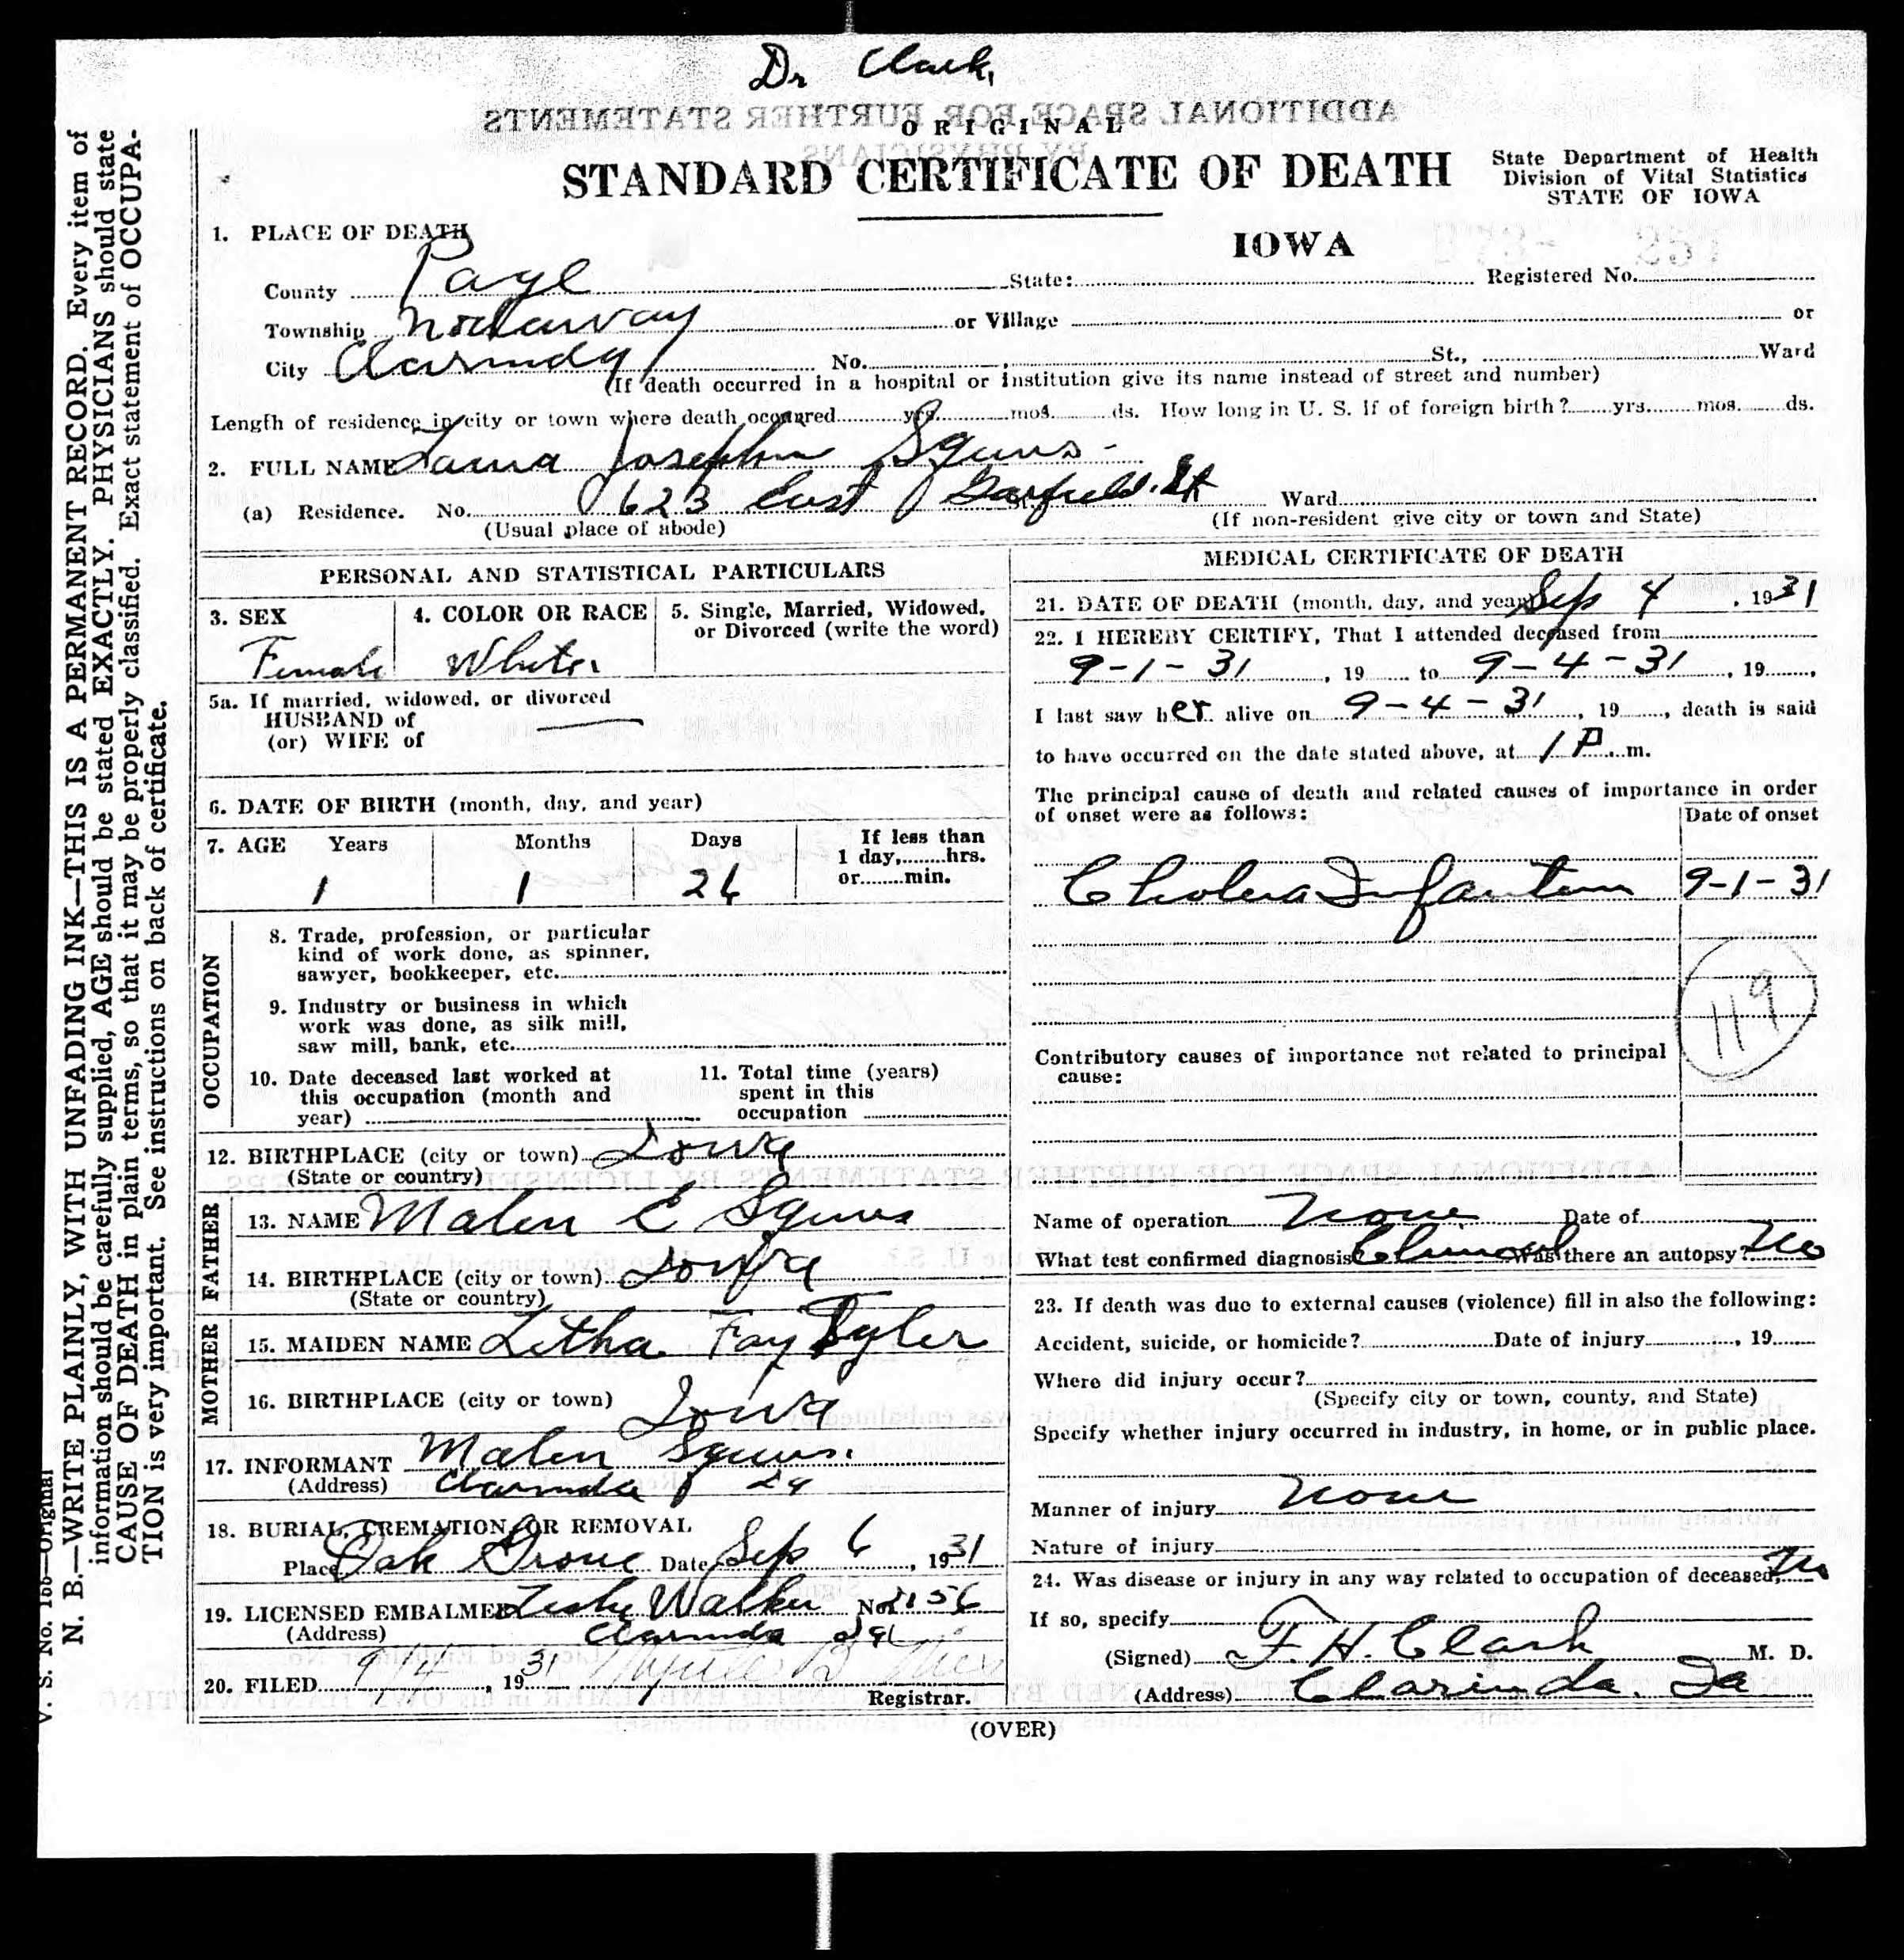 Dr Clark,
ORIGINAL
STANDARD CERTIFICATE OF DEATH
State Department of Health
Division of Vital Statistics
STATE OF IOWA
IOWA
1. PLACE OF DEATH
County Page State: Registered No.
Township Nodaway or Village or
City Clarinda No. St., Ward
(If death occurred in a hospital or institution give its name instead of street and number)
Length of residence in city or town where death occurred yrs. mos. ds. How long in U. S. if of foreign birth? yrs. mos. ds.
2. FULL NAME Josephine Squires
(a) Residence. No. 623 East Garfield. St Ward
(Usual place of abode) (If non-resident give city or town and State)
PERSONAL AND STATISTICAL PARTICULARS
3. SEX 4. COLOR OR RACE 5. Single, Married, Widowed, or Divorced (write the word)
Female White
5a. If married, widowed, or divorced
HUSBAND of
(or) WIFE of
6. DATE OF BIRTH (month, day, and year)
7. AGE Years Months Days If less than
1 day, hrs.
or min.
1 1 26
OCCUPATION
8. Trade, profession, or particular
kind of work done, as spinner,
sawyer, bookkeeper, etc.
9. Industry or business in which
work was done, as silk mill,
saw mill, bank, etc.
10. Date deceased last worked at
this occupation (month and
year)
11. Total time (years)
spent in this
occupation
12. BIRTHPLACE (city or town) Iowa
(State or country)
FATHER
13. NAME Malen E Squires
14. BIRTHPLACE (city or town) Iowa
(State or country)
MOTHER
15. MAIDEN NAME Letha Fay Tyler
16. BIRTHPLACE (city or town) Iowa
17. INFORMANT Malen Squires.
(Address) Clarinda Ia
18. BURIAL, CREMATION, OR REMOVAL
Place Oak Grove Date Sep 6, 1931
19. LICENSED EMBALMER Leslie Walker No. 2156
(Address) Clarinda Ia
20. FILED 9/4, 1931
Registrar.
MEDICAL CERTIFICATE OF DEATH
21. DATE OF DEATH (month, day, and year) Sep 4, 1931
22. I HEREBY CERTIFY, That I attended deceased from
9-1-31, 19 to 9-4-31, 19,
I last saw her alive on 9-4-31, 19, death is said
to have occurred on the date stated above, at 1 P. m.
The principal cause of death and related causes of importance in order
of onset were as follows:
Date of onset
Cholera Infantum 9-1-31
119
Contributory causes of importance not related to principal
cause:
Name of operation None. Date of
What test confirmed diagnosis? Clinical Was there an autopsy? No
23. If death was due to external causes (violence) fill in also the following:
Accident, suicide, or homicide? Date of injury, 19
Where did injury occur?
(Specify city or town, county, and State)
Specify whether injury occurred in industry, in home, or in public place.
Manner of injury None
Nature of injury
24. Was disease or injury in any way related to occupation of deceased? No
If so, specify
(Signed) F. H. Clark M. D.
(Address) Clarinda. Ia
(OVER)
N. B.—WRITE PLAINLY, WITH UNFADING INK—THIS IS A PERMANENT RECORD. Every item of
information should be carefully supplied, AGE should be stated EXACTLY. PHYSICIANS should state
CAUSE OF DEATH in plain terms, so that it may be properly classified. Exact statement of OCCUPA-
TION is very important. See instructions on back of certificate.
ADDITIONAL SPACE FOR FURTHER STATEMENTS
BY PHYSICIANS